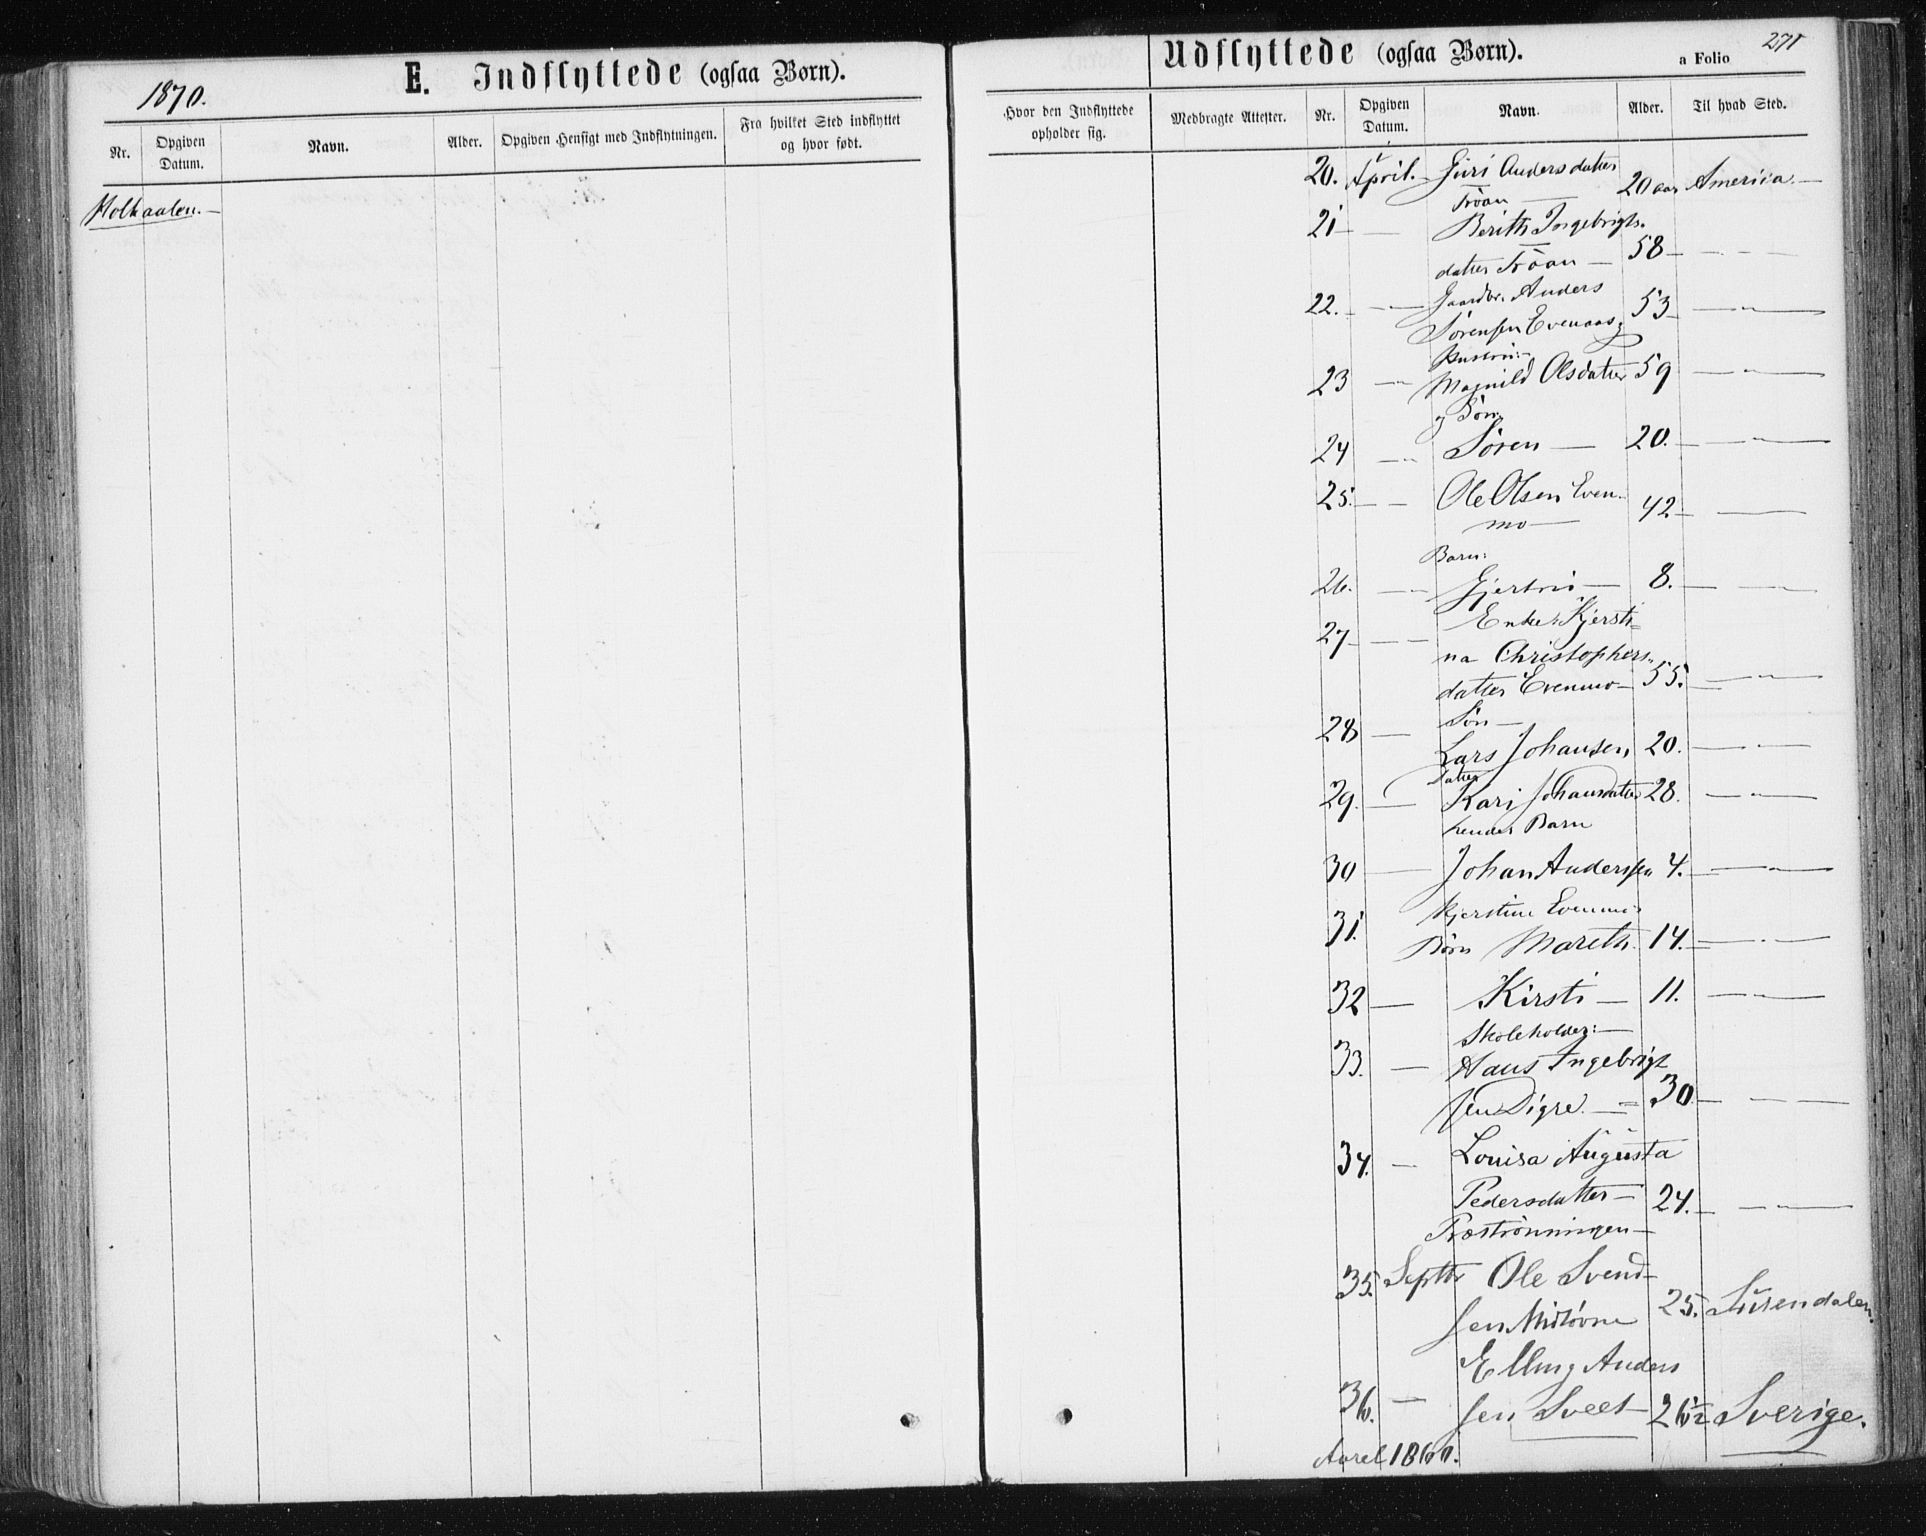 1870.
E. Indflyttede (ogsaa Børn).
Nr.
Opgiven Datum.
Navn.
Alder.
Opgiven Hensigt med Indflytningen.
Fra hvilket Sted indflyttet og hvor født.
Holtaalen.—
Udflyttede (ogsaa Børn).
a Folio
271
Hvor den Indflyttede opholder sig.
Medbragte Attester.
Nr.
Opgiven Datum.
Navn.
Alder.
Til hvad Sted.
20. April. Guri Andersdatter
Troan — 20 aar America.—
21 — — Berith Ingebrigts-
datter Troan — 58 — — — —
22. — — Gaardbr. Anders
Sørensen Evenaas 53 — — " —
Hustru:
23 — " Magnild Olsdatter 59 — " —
og Søn
24 — " Søren — 20. — — " —
25. — — Ole Olsen Even-
mo — 42 — — " —
Barn:
26. — — Gjertrui — 8. — — " —
27 — — Enke Kjersti=
na Christophers-
datter Evenmo — 55. — " —
Søn —
28 — Lars Johansen 20. — " —
Datter
29. — Kari Johansdatter 28. — " —
hendes Barn
30 — Johan Anderssen 4. — — " —
Kjerstine Evenmos
31. Børn Mareth. 14. — — " —
32 — Kirsti — 11. — " —
Skoleholder: —
33. — Hans Ingebrigt
sen Digre. — 30 — — —
34. — Louisa Augusta
Pedersdatter — 24. — " —
Præstrønningen —
35. Septbr Ole Svend-
sen Midtøvne 25. Surendalen.
Elling Anders
36. — sen Svet — 26½ Sverige.
Aaret 1860.